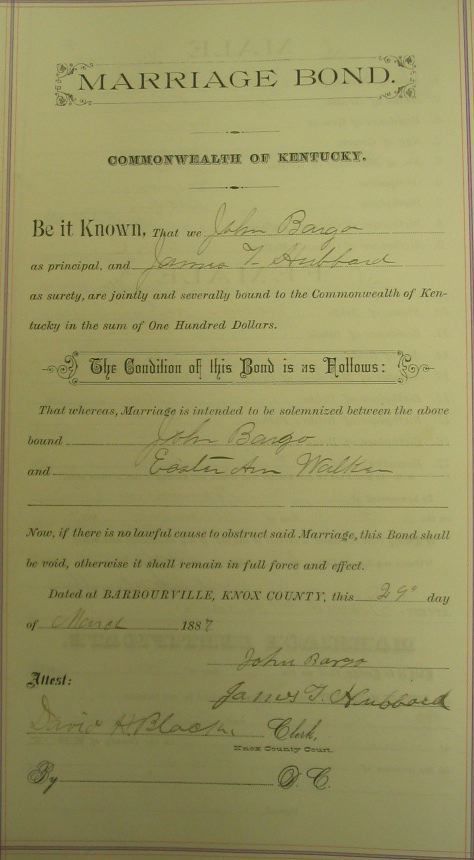 MARRIAGE BOND.
COMMONWEALTH OF KENTUCKY.
Be it Known, That we John Bargo
as principal, and James T. Hubbard
as surety, are jointly and severally bound to the Commonwealth of Ken-
tucky in the sum of One Hundred Dollars.
The Condition of this Bond is as Follows:
That whereas, Marriage is intended to be solemnized between the above
bound John Bargo
and Easter Ann Walker
Now, if there is no lawful cause to obstruct said Marriage, this Bond shall
be void, otherwise it shall remain in full force and effect.
Dated at BARBOURVILLE, KNOX COUNTY, this 29" day
of March 1887
John Bargo
Attest:
James T. Hubbard
David H. Clerk.
Knox County Court.
By D. C.